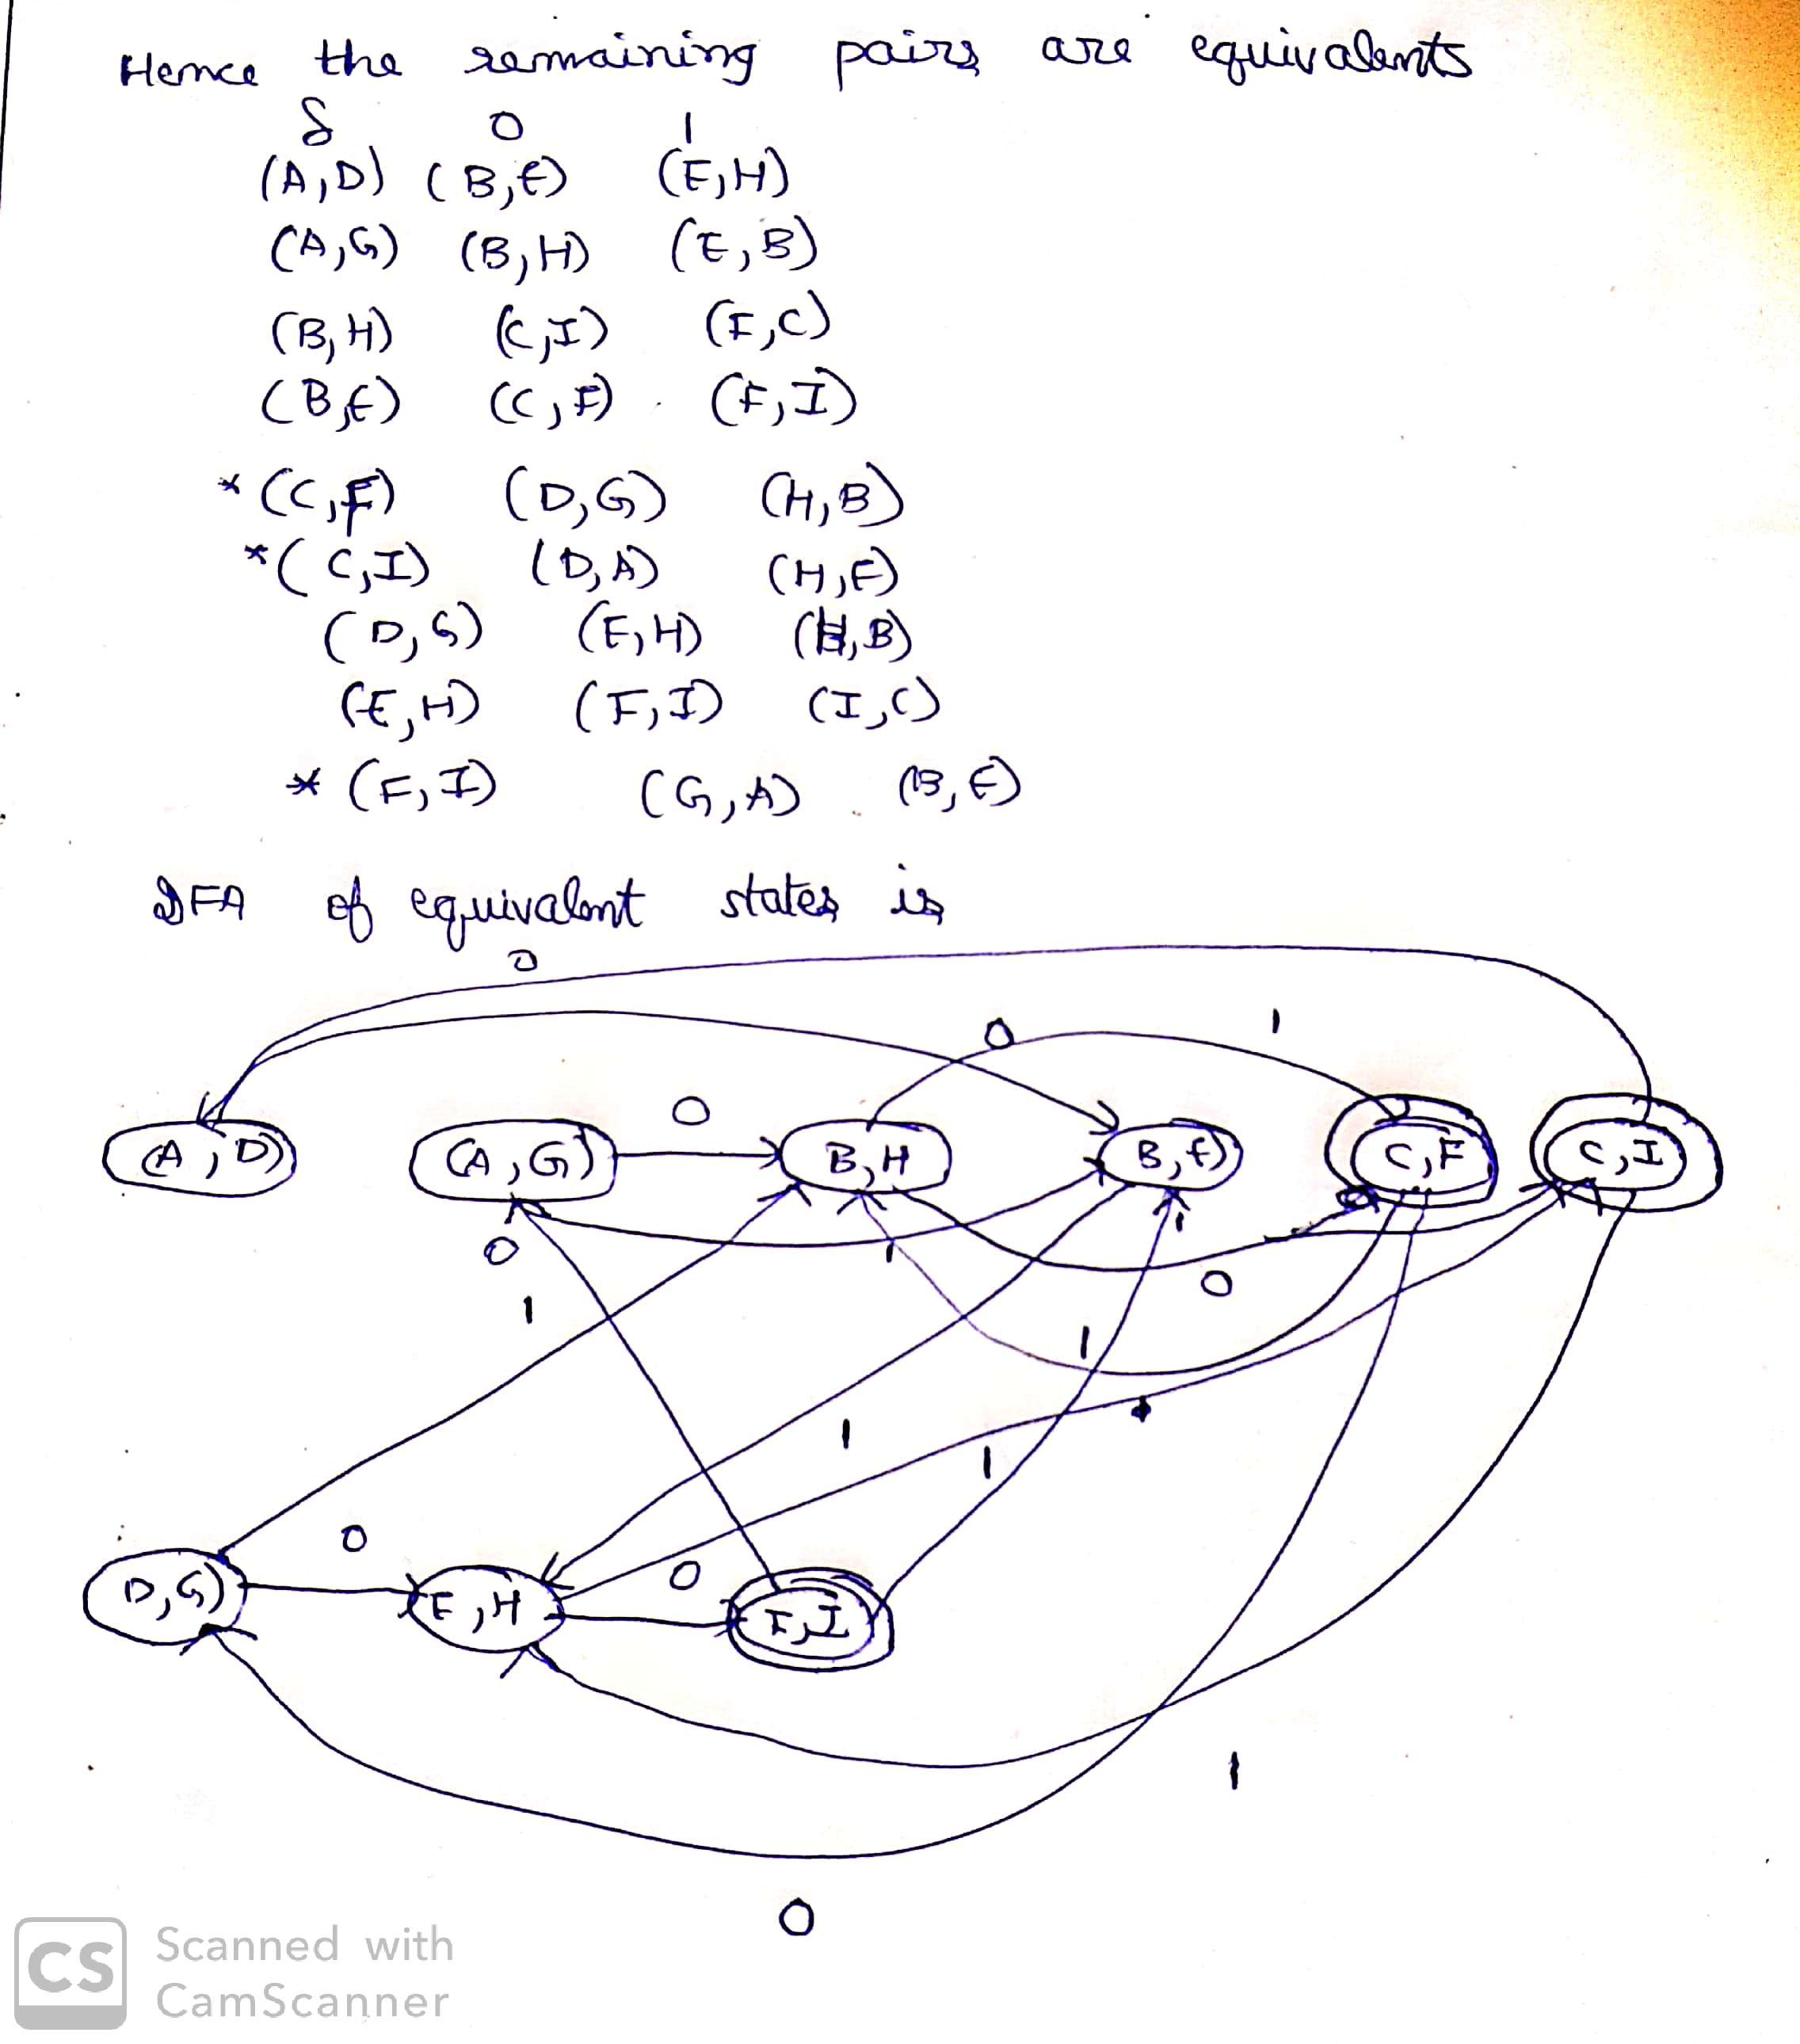 Hence the remaining pairs are equivalents
δ 0 1
(A,D) (B,E) (E,H)
(A,G) (B,H) (E,B)
(B,H) (C,I) (F,C)
(B,E) (C,F) (F,I)
*(C,F) (D,G) (H,B)
*(C,I) (D,A) (H,E)
(D,G) (E,H) (H,B)
(E,H) (F,I) (I,C)
*(F,I) (G,A) (B,E)
DFA of equivalent states is
0
0 1
0
(A,D) (A,G) B,H B,E) C,F C,I
0 1
0
1
1
1
1
0
0
D,G) E,H F,I
1
0
CS Scanned with
CamScanner